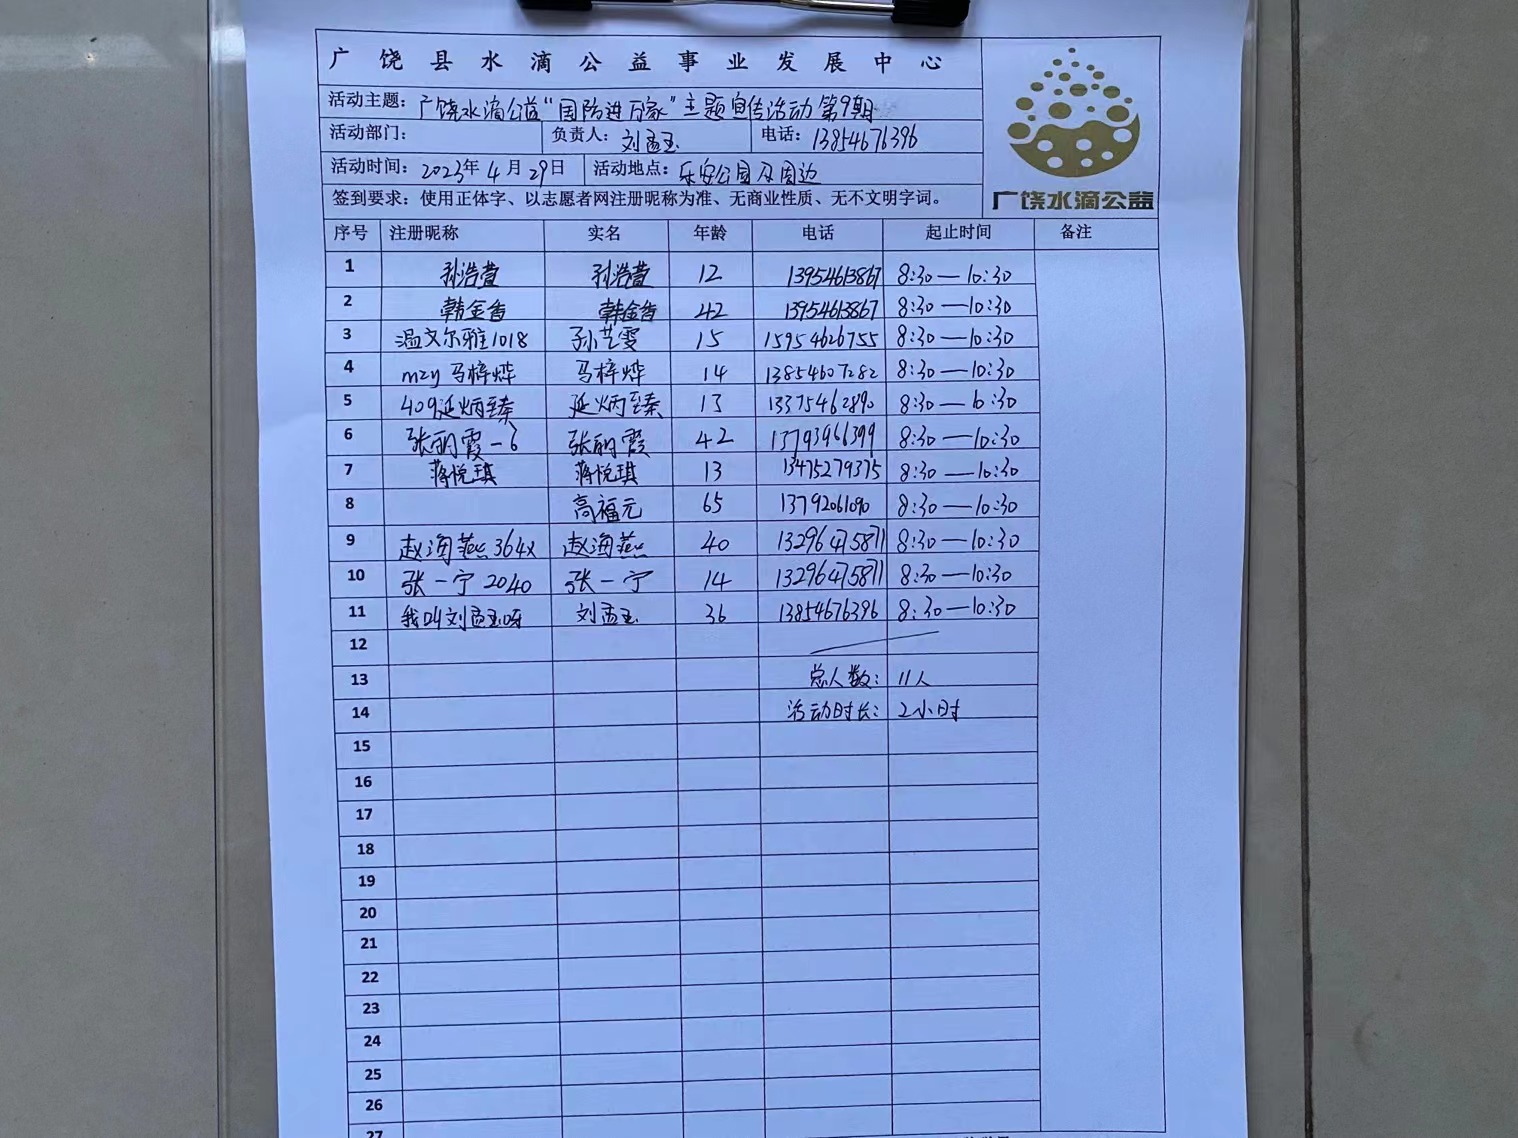 广饶县水滴公益事业发展中心
活动主题：广饶水滴公益“国防进万家”主题宣传活动 第9期
活动部门： 负责人：刘孟玉 电话：13854676396
活动时间：2023年4月29日 活动地点：乐安公园及周边
签到要求：使用正体字、以志愿者网注册昵称为准、无商业性质、无不文明字词。
广饶水滴公益
序号 注册昵称 实名 年龄 电话 起止时间 备注
1 孙浩萱 孙浩萱 12 13954613867 8:30—10:30
2 韩金香 韩金香 42 13954613867 8:30—10:30
3 温文尔雅1018 孙艺雯 15 15954626755 8:30—10:30
4 mzy马梓烨 马梓烨 14 13854607282 8:30—10:30
5 409延炳臻 延炳臻 13 13375462890 8:30—10:30
6 张丽霞-6 张丽霞 42 13793966399 8:30—10:30
7 蒋悦琪 蒋悦琪 13 13475279375 8:30—10:30
8 高福元 65 13792061090 8:30—10:30
9 赵海燕364x 赵海燕 40 13296475871 8:30—10:30
10 张一宁2040 张一宁 14 13296475871 8:30—10:30
11 我叫刘孟玉呀 刘孟玉 36 13854676396 8:30—10:30
12
13 总人数：11人
14 活动时长：2小时
15
16
17
18
19
20
21
22
23
24
25
26
27